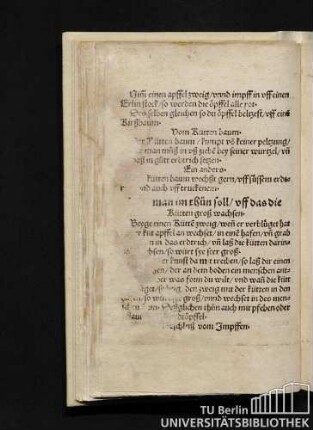 Nim einen apffel zweig/vnnd impff in vff einen
Erlin stock/so werden die öpffel alle rot.
Desselben glichen so du öpffel beltzest/vff eins
Kirßbaum.
Vom Kütten baum.
Kütten baum/kumpt vß keiner peltzung/
man můß in vß ziehē bey seiner wurtzel/vñ
in gůtt erdtrich setzen.
Ein anders.
kütten baum wechßt gern/vff süssem erdt
vnd auch vff truckenem.
man im thůn soll/vff das die
Kütten groß wachsen.
Beyge einen Küttē zweig/wen er verblüget hat
apffel an wechset/in eine hafen/vñ grab
in das erdtrich/vñ laß die kütten darin
so wirt sie seer groß.
kunst da mit treiben/so laß dir einen
der an dem boden ein menschen ant
was form du wilt/vnd waß die küt
den zweig mit der kütten in den
so groß/vnnd wechset in des men
Deßglichen thůn auch mit pfeben oder
öpffel.
vom Impffen.
TU Berlin
UNIVERSITÄTSBIBLIOTHEK